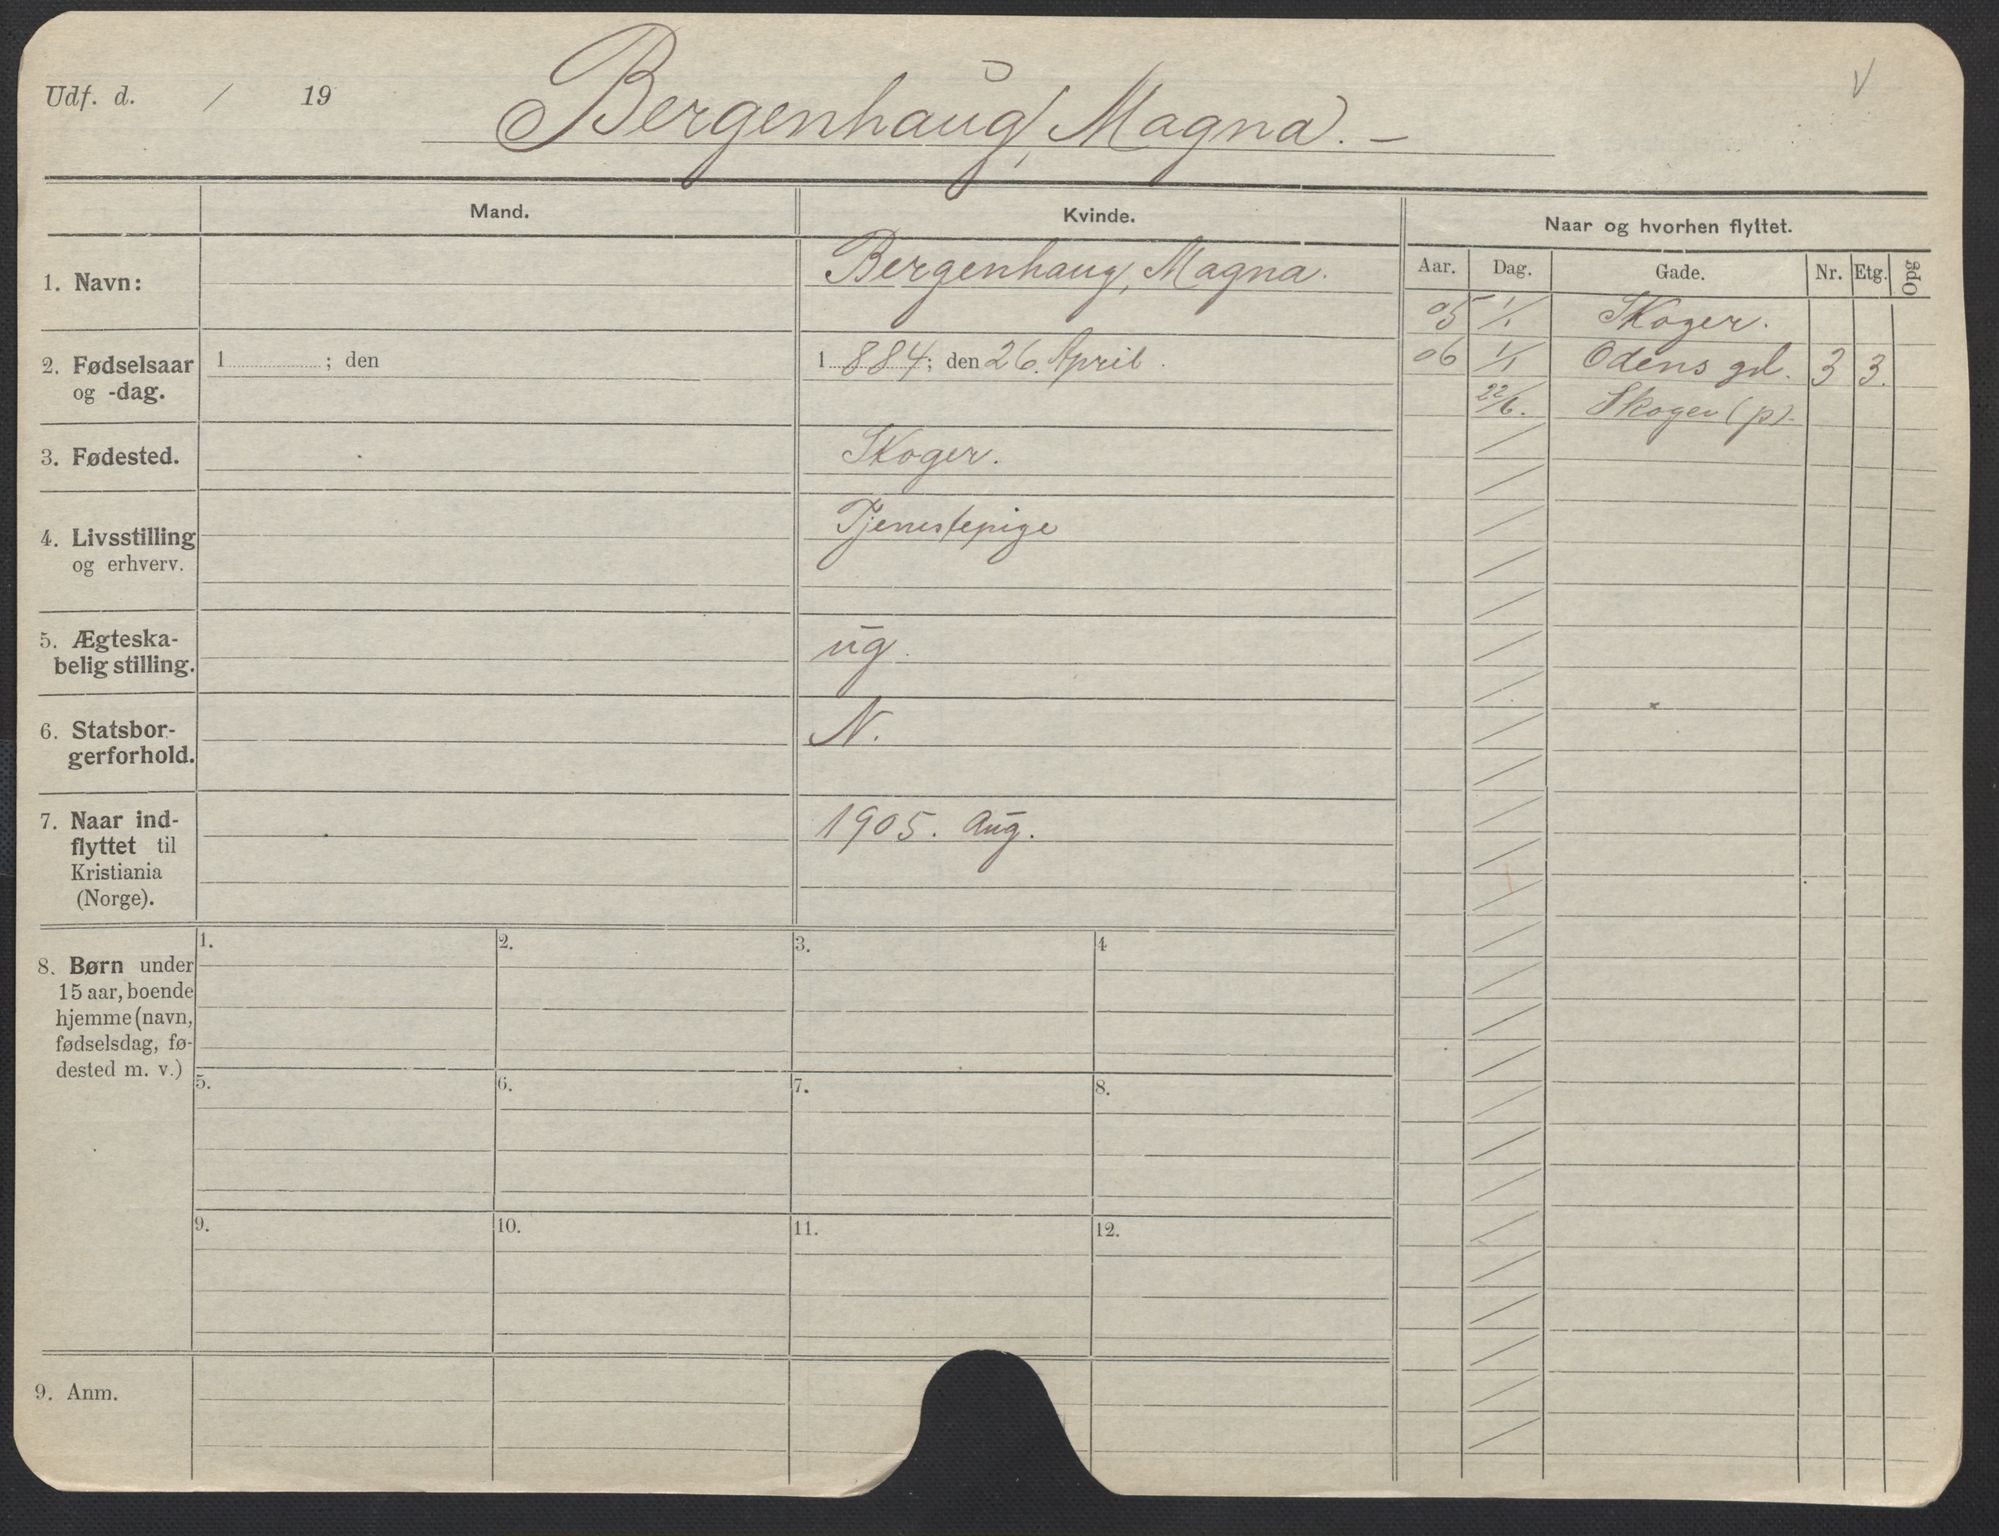 Udf. d. / 19 Bergenhaug, Magna. –
V
Mand. Kvinde. Naar og hvorhen flyttet.
Aar. Dag. Gade. Nr. Etg. Opg
1. Navn: Bergenhaug, Magna.
05 1/1 Skoger.
2. Fødselsaar og -dag. 1 ; den 1 884; den 26. April.
06 1/1 Odens gd. 3 3.
22/6. Skoger (p).
3. Fødested. Skoger.
4. Livsstilling og erhverv. Tjenestepige
5. Ægteska-
belig stilling. ug.
6. Statsbor-
gerforhold. N.
7. Naar ind-
flyttet til
Kristiania
(Norge). 1905. Aug.
8. Børn under
15 aar, boende
hjemme (navn,
fødselsdag, fø-
dested m. v.)
1. 2. 3. 4
5. 6. 7. 8.
9. 10. 11. 12.
9. Anm.